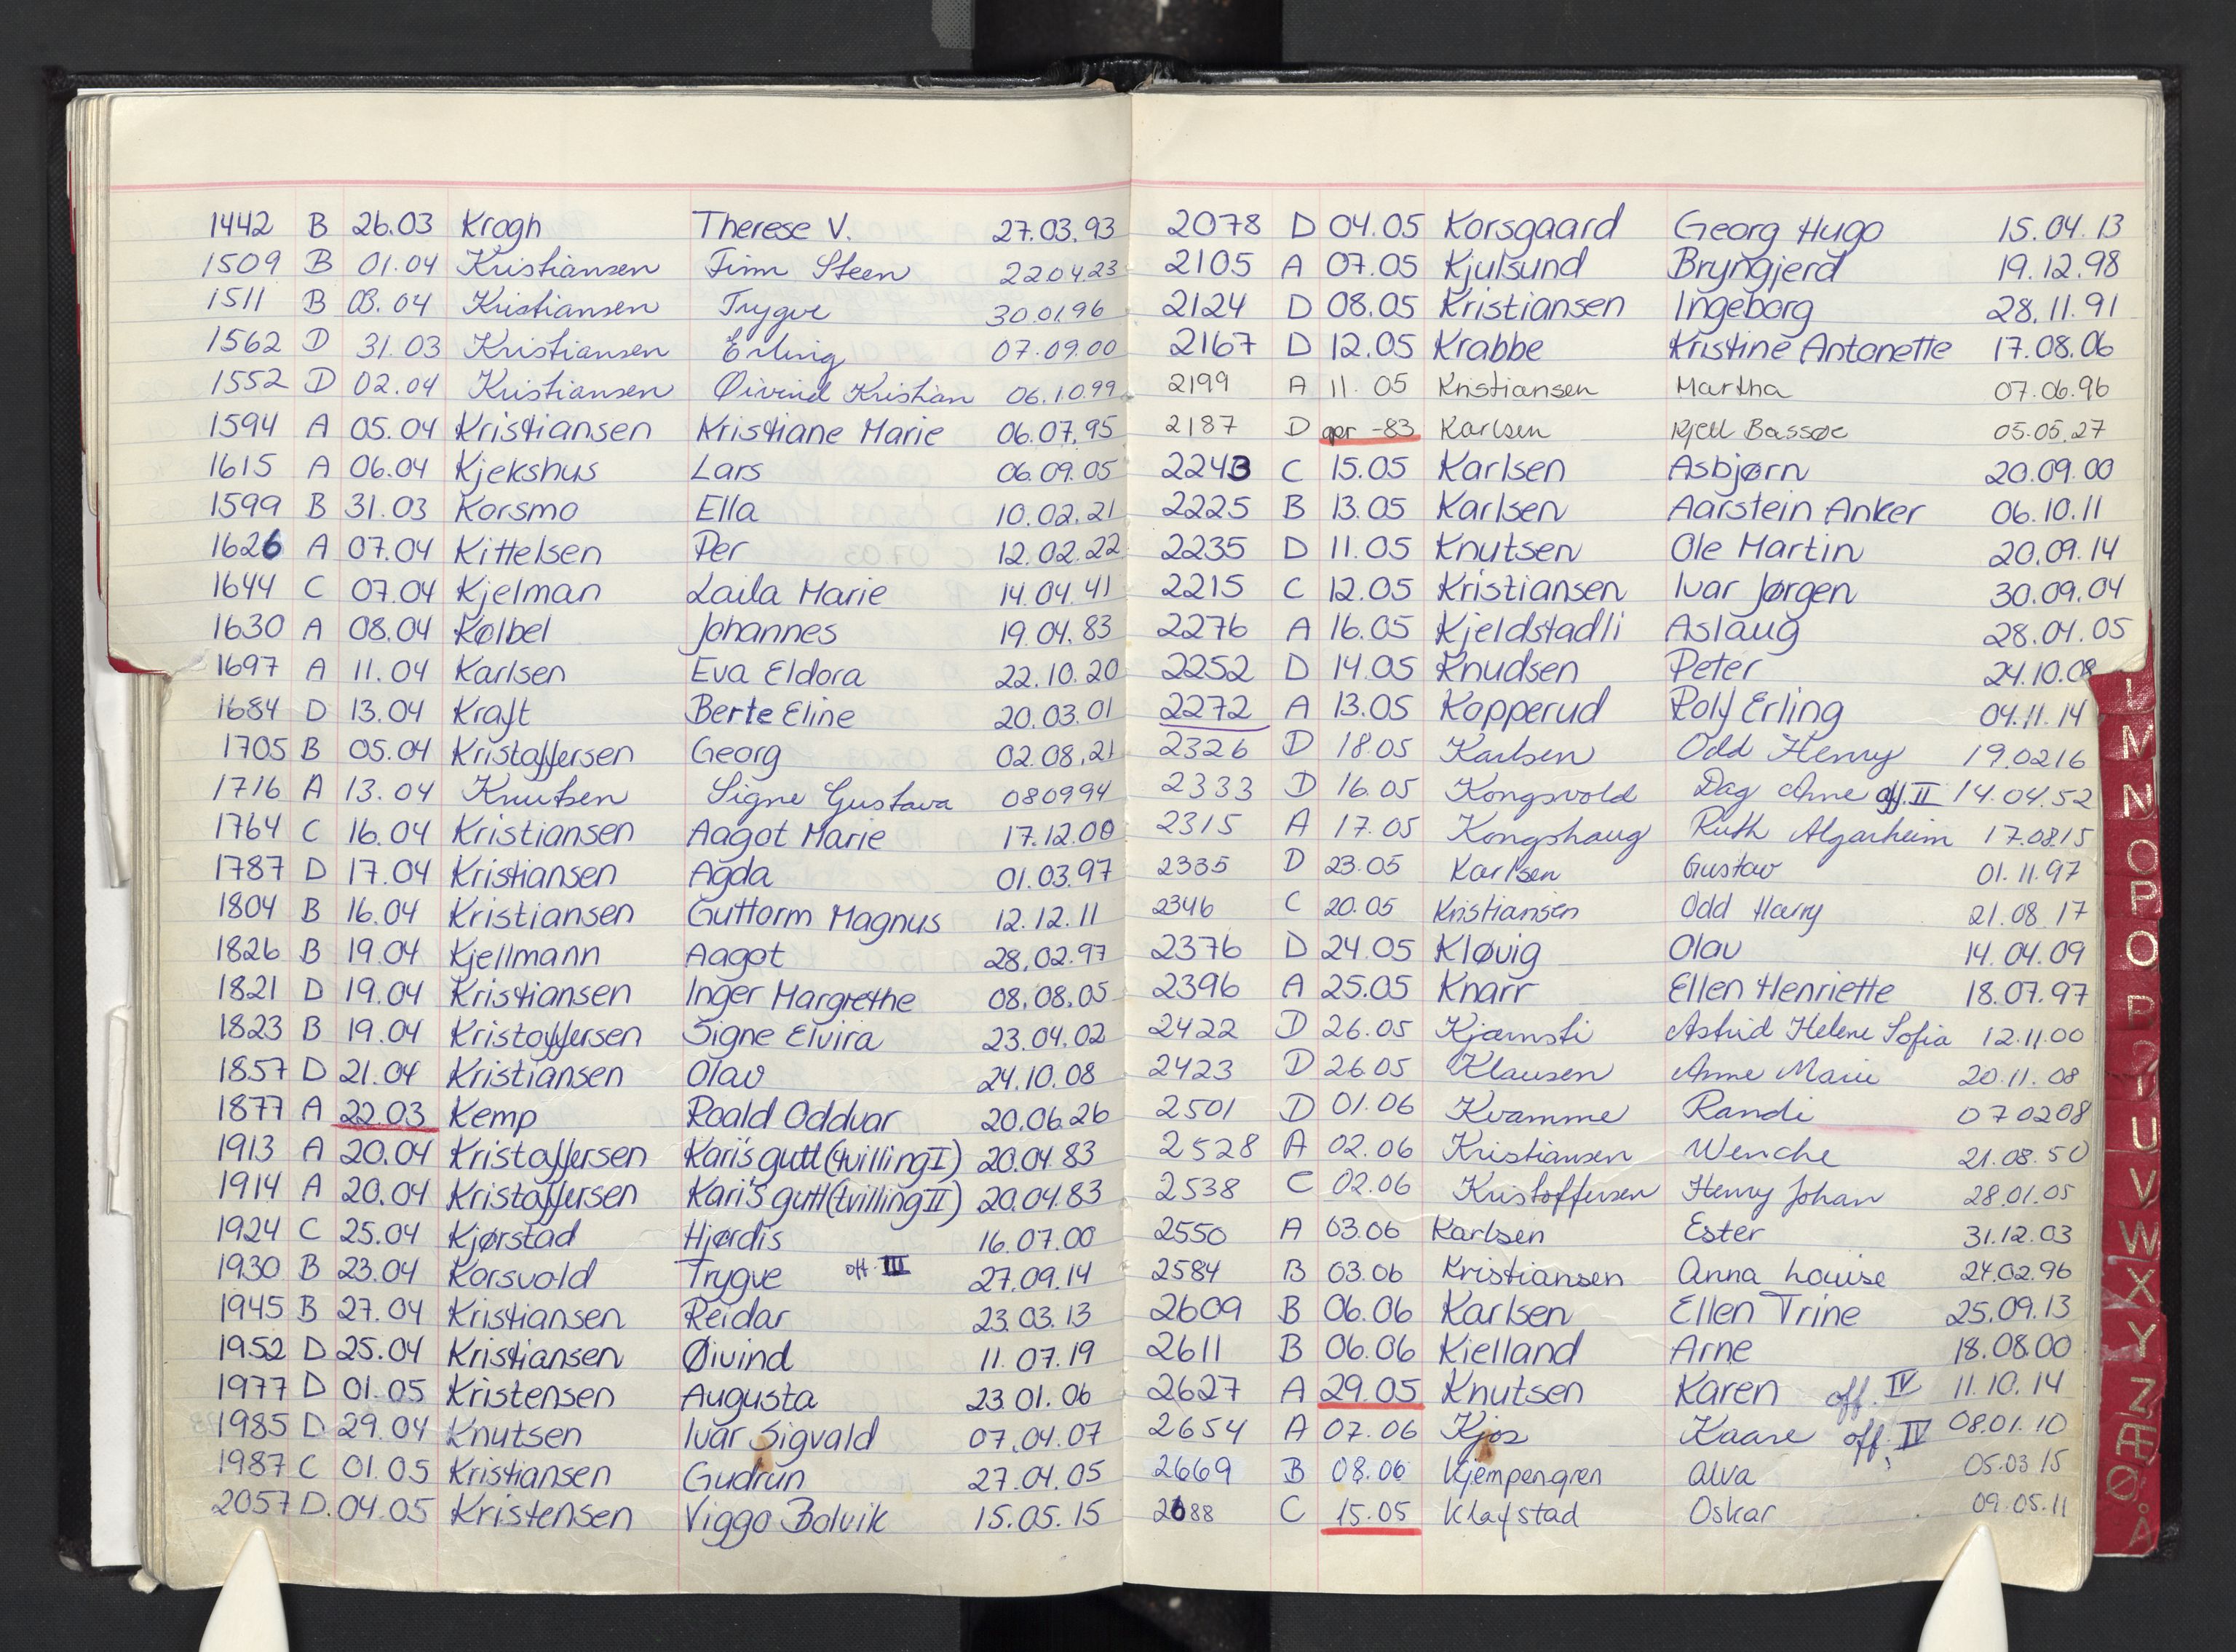 1442 B 26.03 Krogh Therese V. 27.03.93
1509 B 01.04 Kristiansen Finn Steen 22.04.23
1511 B 03.04 Kristiansen Trygve 30.01.96
1562 D 31.03 Kristiansen Erling 07.09.00
1552 D 02.04 Kristiansen Øivind Kristian 06.10.99
1594 A 05.04 Kristiansen Kristiane Marie 06.07.95
1615 A 06.04 Kjekshus Lars 06.09.05
1599 B 31.03 Korsmo Ella 10.02.21
1626 A 07.04 Kittelsen Per 12.02.22
1644 C 07.04 Kjelman Laila Marie 14.04.41
1630 A 08.04 Kølbel Johannes 19.04.83
1697 A 11.04 Karlsen Eva Eldora 22.10.20
1684 D 13.04 Kraft Berte Eline 20.03.01
1705 B 05.04 Kristoffersen Georg 02.08.21
1716 A 13.04 Knutsen Signe Gustava 080994
1764 C 16.04 Kristiansen Aagot Marie 17.12.00
1787 D 17.04 Kristiansen Agda 01.03.97
1804 B 16.04 Kristiansen Guttorm Magnus 12.12.11
1826 B 19.04 Kjellmann Aagot 28.02.97
1821 D 19.04 Kristiansen Inger Margrethe 08.08.05
1823 B 19.04 Kristoffersen Signe Elvira 23.04.02
1857 D 21.04 Kristiansen Olav 24.10.08
1877 A 22.03 Kemp Roald Oddvar 20.06.26
1913 A 20.04 Kristoffersen Kari's gutt (tvilling I) 20.04.83
1914 A 20.04 Kristoffersen Kari's gutt (tvilling II) 20.04.83
1924 C 25.04 Kjørstad Hjørdis 16.07.00
1930 B 23.04 Korsvold Trygve off. III 27.09.14
1945 B 27.04 Kristiansen Reidar 23.03.13
1952 D 25.04 Kristiansen Øivind 11.07.19
1977 D 01.05 Kristensen Augusta 23.01.06
1985 D 29.04 Knutsen Ivar Sigvald 07.04.07
1987 C 01.05 Kristiansen Gudrun 27.04.05
2057 D. 04.05 Kristensen Viggo Bolvik 15.05.15
2078 D 04.05 Korsgaard Georg Hugo 15.04.13
2105 A 07.05 Kjulsund Bryngjerd 19.12.98
2124 D 08.05 Kristiansen Ingeborg 28.11.91
2167 D 12.05 Krabbe Kristine Antonette 17.08.06
2199 A 11.05 Kristiansen Martha 07.06.96
2187 D apr -83 Karlsen Kjell Bassøe 05.05.27
2243 C 15.05 Karlsen Asbjørn 20.09.00
2225 B 13.05 Karlsen Aarstein Anker 06.10.11
2235 D 11.05 Knutsen Ole Martin 20.09.14
2215 C 12.05 Kristiansen Ivar Jørgen 30.09.04
2276 A 16.05 Kjeldstadli Aslaug 28.04.05
2252 D 14.05 Knudsen Peter 24.10.08
2272 A 13.05 Kopperud Rolf Erling 04.11.14
2326 D 18.05 Karlsen Odd Henry 19.0216
2333 D 16.05 Kongsvold Dag Arne off. II 14.04.52
2315 A 17.05 Kongshaug Ruth Algarheim 17.0815
2335 D 23.05 Karlsen Gustav 01.11.97
2346 C 20.05 Kristiansen Odd Harry 21.08.17
2376 D 24.05 Kløvig Olav 14.04.09
2396 A 25.05 Knarr Ellen Henriette 18.07.97
2422 D 26.05 Kjærnsli Astrid Helene Sofia 12.11.00
2423 D 26.05 Klausen Anne Marie 20.11.08
2501 D 01.06 Kvamme Randi 070208
2528 A 02.06 Kristiansen Wenche 21.08.50
2538 C 02.06 Kristoffersen Henry Johan 28.01.05
2550 A 03.06 Karlsen Ester 31.12.03
2584 B 03.06 Kristiansen Anna Louise 24.02.96
2609 B 06.06 Karlsen Ellen Trine 25.09.13
2611 B 06.06 Kielland Arne 18.08.00
2627 A 29.05 Knutsen Karen off. IV 11.10.14
2654 A 07.06 Kjos Kaare off. IV 08.01.10
2669 B 08.06 Kjempengren Alva 05.03.15
2688 C 15.05 Klafstad Oskar 09.05.11
M
N
O
P
O
P
U
V
W
X
Y
Z
Æ
Ø
Å